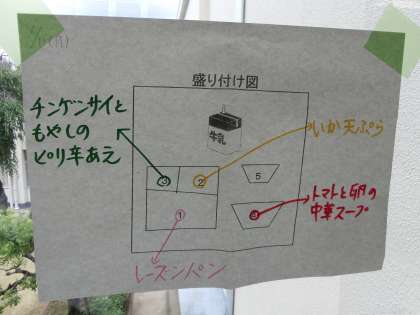 盛り付け図
チンゲンサイと
もやしの
ピリ辛あえ
牛乳
いか天ぷら
③
②
5
①
④
トマトと卵の
中華スープ
レーズンパン